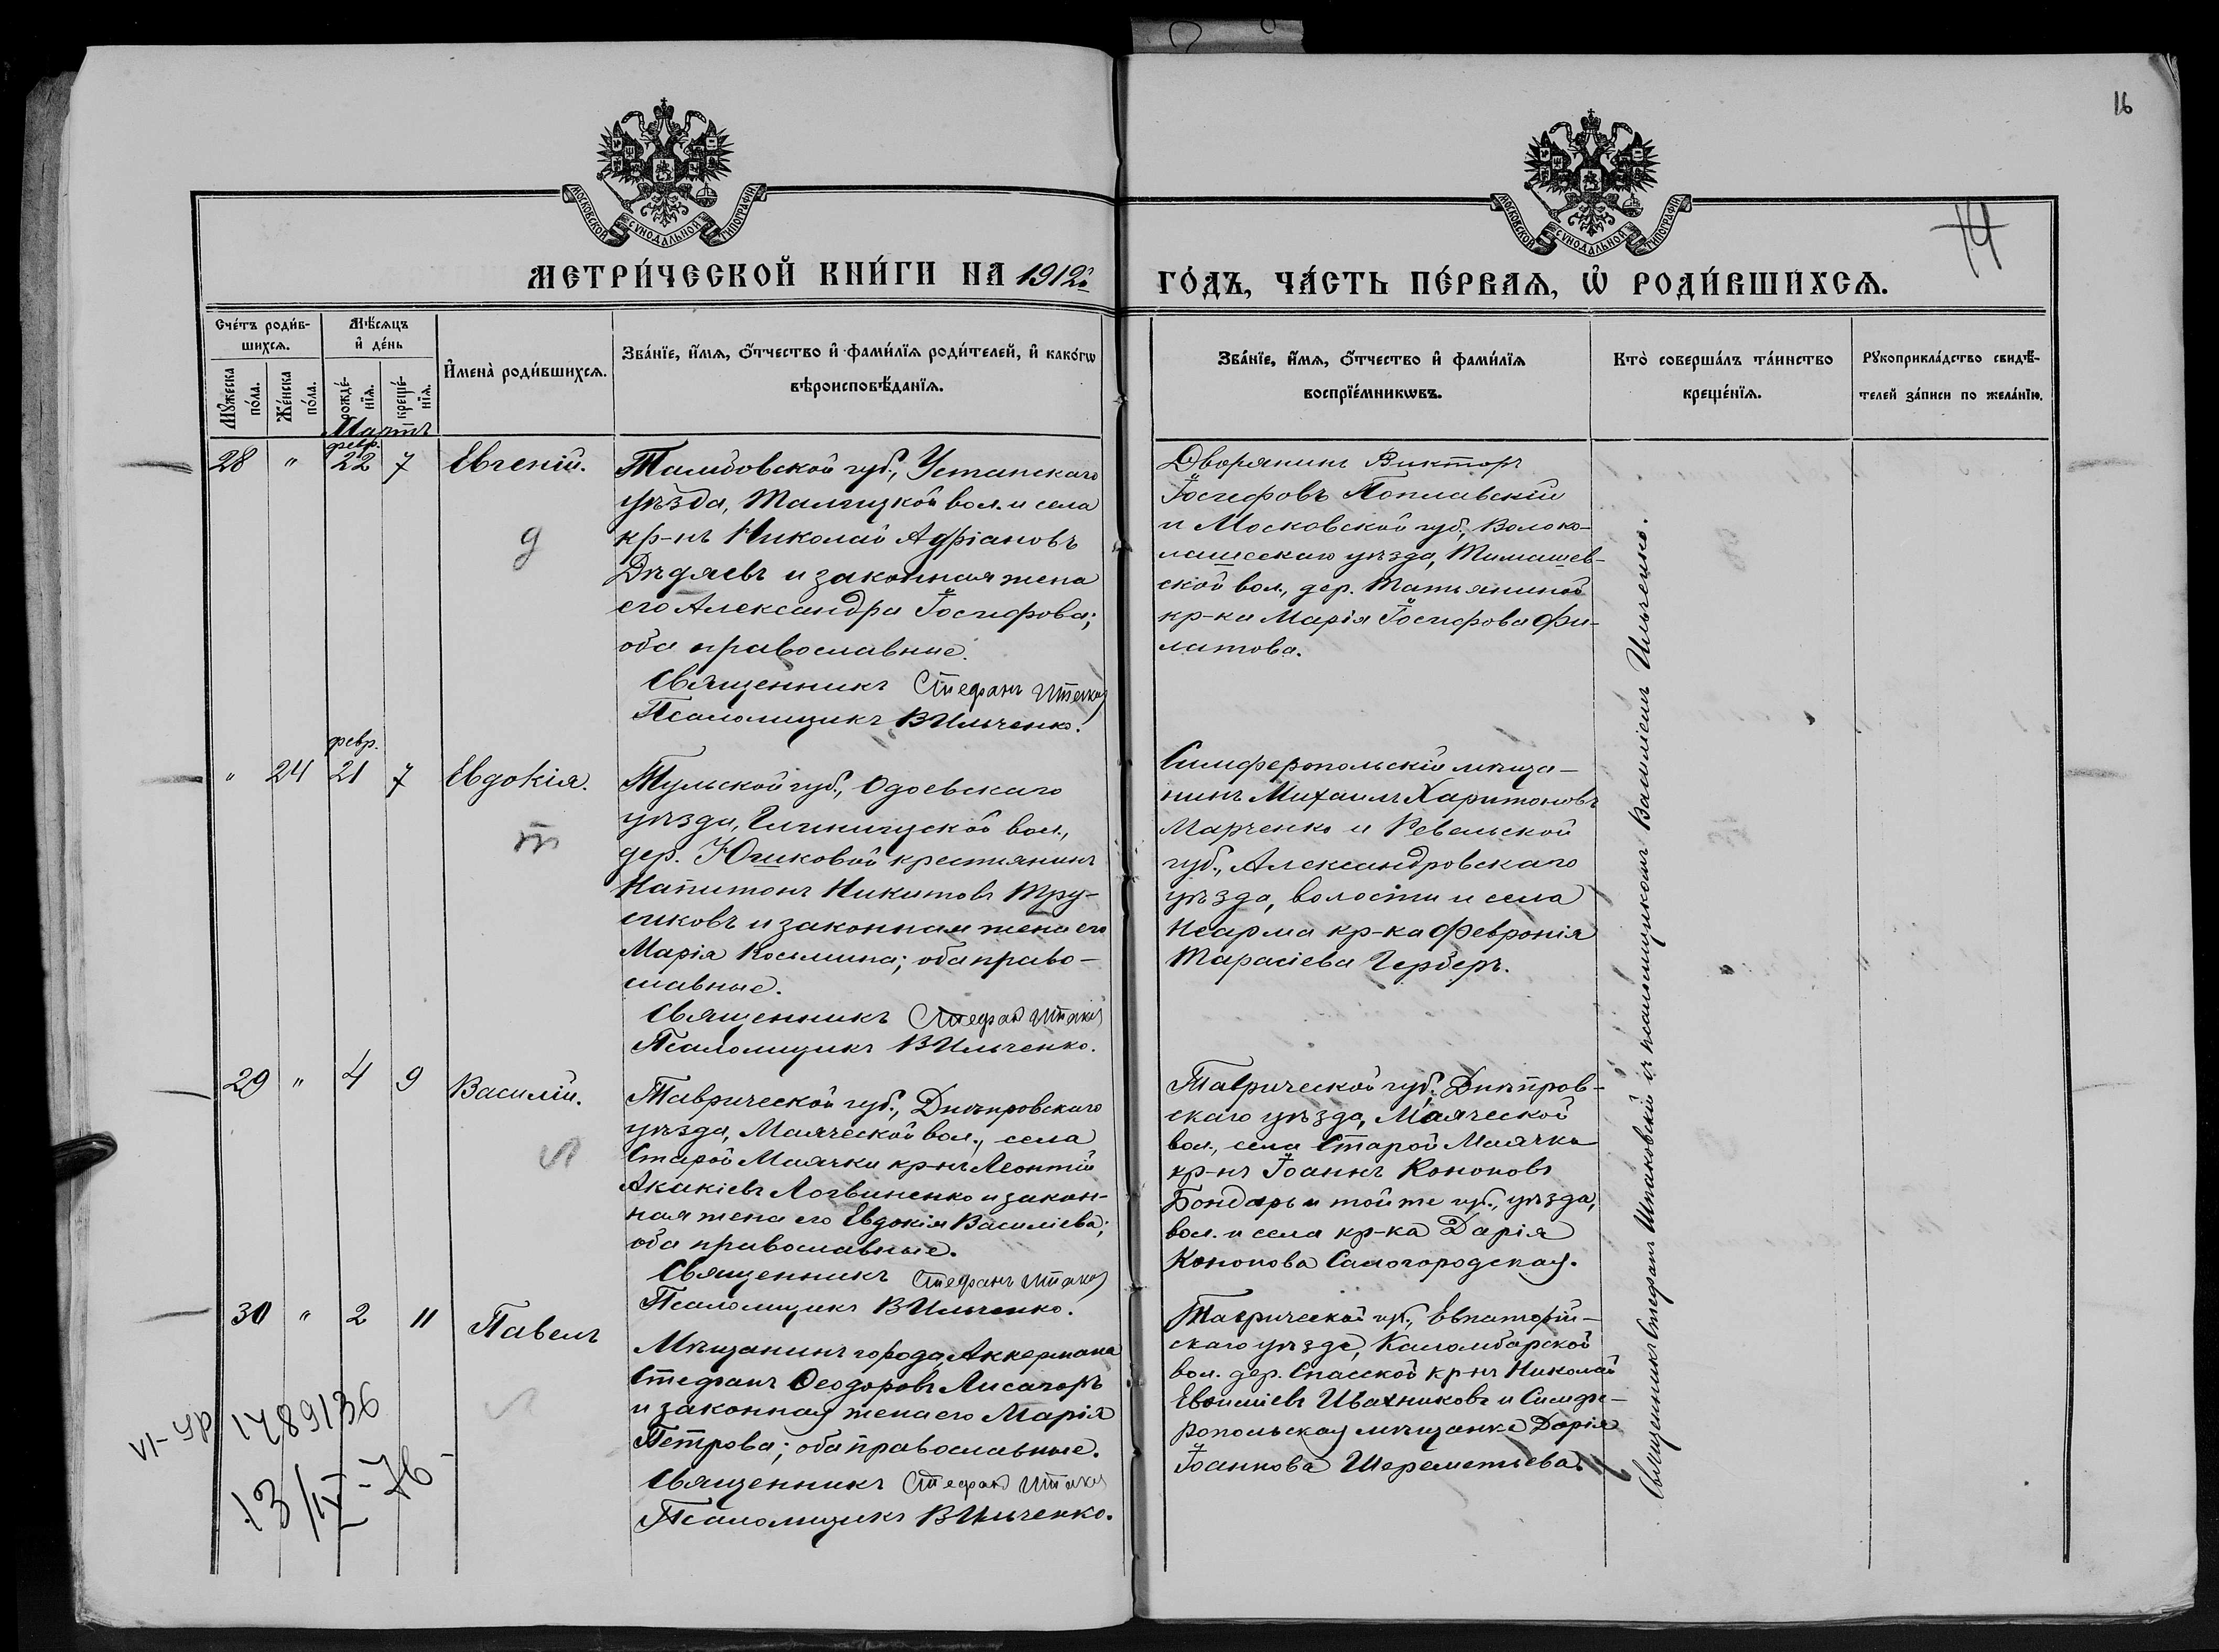 16
14
МОСКОВСКОЙ СѴНОДАЛЬНОЙ ТИПОГРАФІИ
МОСКОВСКОЙ СѴНОДАЛЬНОЙ ТИПОГРАФІИ
МЕТРИ́ЧЕСКОЙ КНИ́ГИ НА 1912й
ГО́ДЪ, ЧА́СТЬ ПЕ́РВАѦ, Ѡ҆ РОДИ́ВШИХСѦ.
Сче́тъ роди́в-
шихсѧ.
Мꙋ́жеска по́ла.
Же́нска по́ла.
Мѣ́сѧцъ
и҆ де́нь
рожде́-
нїѧ.
креще́-
нїѧ.
И҆мена̀ роди́вшихсѧ.
Зва́нїе, и҆́мѧ, ѻ҆́тчество и҆ фами́лїѧ роди́телей, и҆ како́гѡ
вѣроисповѣ́данїѧ.
Зва́нїе, и҆́мѧ, ѻ҆́тчество и҆ фами́лїѧ
воспрїе́мникѡвъ.
Кто̀ соверша́лъ та́инство
креще́нїѧ.
Рꙋкоприкла́дство свидѣ́-
телей за́писи по жела́нїю.
Мартъ
февр.
28 " 22 7 Евгеній.
Тамбовской губ., Усманскаго
уѣзда, Талицкой вол. и села
кр-нъ Николай Адріановъ
Дѣдяевъ и законная жена
его Александра Іосифова;
оба православные.
Священникъ Стефанъ Штак
Псаломщикъ В Ильченко.
Дворянинъ Викторъ
Іосифовъ Поплавскій
и Московской губ., Волоко-
ламскаго уѣзда, Тимашев-
ской вол., дер. Татьяниной
кр-ка Марія Іосифова Фи-
латова.
д
февр.
" 24 21 7 Евдокія.
Тульской губ., Одоевскаго
уѣзда, вол.,
дер. Юшковой крестьянинъ
Капитонъ Никитовъ Тру-
сиковъ и законная жена его
Марія Косьмина; оба право-
славные.
Священникъ Стефан Штак
Псаломщикъ В Ильченко.
Симферопольскій мѣща-
нинъ Михаилъ Харитоновъ
Марченко и Ревельской
губ., Александровскаго
уѣзда, волости и села
кр-ка Февронія
Тарасіева Герберъ.
т
29 " 4 9 Василій.
Таврической губ., Днѣпровскаго
уѣзда, Маяческой вол., села
Старой Маячки кр-нъ Леонтій
Акакіевъ Логвиненко и закон-
ная жена его Евдокія Василіева;
оба православные.
Священникъ Стефанъ Штак
Псаломщикъ В Ильченко.
Таврической губ., Днѣпров-
скаго уѣзда, Маяческой
вол., села Старой Маячки
кр-нъ Іоаннъ Кононовъ
Бондарь и той же губ., уѣзда,
вол. и села кр-ка Дарія
Кононова Самогородская.
л
30 " 2 11 Павелъ
Мѣщанинъ города Аккермана
Стефанъ Ѳеодоровъ Лисачоръ
и законная жена его Марія
Петрова; оба православные.
Священникъ Стефан Штак
Псаломщикъ В Ильченко.
Таврической губ., Евпаторій-
скаго уѣзда,
вол. дер. Спасской кр-нъ Николай
Евѳиміевъ Ивахниковъ и Симфе-
ропольская мѣщанка Дарія
Іоаннова Шереметьева.
л
VI-УР 1489136
13/IV-76
Священникъ Стефанъ Штаковскій съ псаломщикомъ Василіемъ Ильченко.